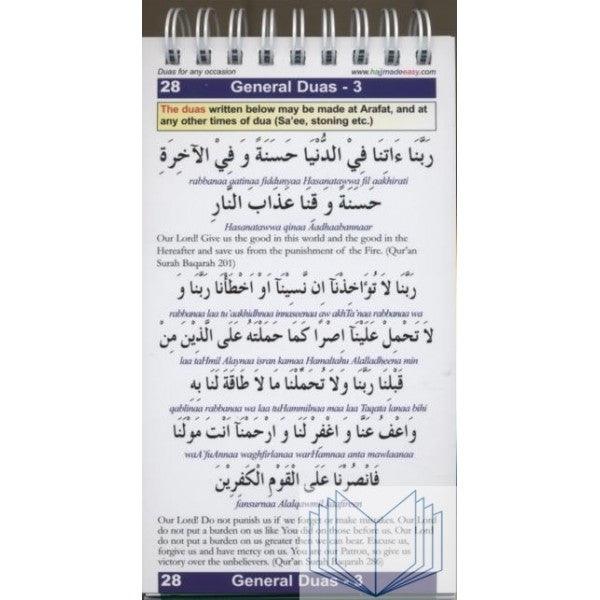 Duas for any occasion www.hajmadeeasy.com
28 General Duas - 3
The duas written below may be made at Arafat, and at
any other times of dua (Sa'ee, stoning etc.)
رَبَّنَا ءَاتِنَا فِيْ الدُّنْيَا حَسَنَةً وَ فِيْ الْآخِرَةِ
rabbanaa aatinaa fiddunyaa Hasanatawwa fil aakhirati
حَسَنَةً وَ قِنَا عَذَابَ النَّارِ
Hasanatawwa qinaa Aadhaabannaar
Our Lord! Give us the good in this world and the good in the
Hereafter and save us from the punishment of the Fire. (Qur'an
Surah Baqarah 201)
رَبَّنَا لَا تُؤَاخِذْنَآ اِنْ نَّسِيْنَآ اَوْ اَخْطَأْنَا رَبَّنَا وَ
rabbanaa laa tu'aakhidhnaa innaseenaa aw akhTa'naa rabbanaa wa
لَا تَحْمِلْ عَلَيْنَآ اِصْرًا كَمَا حَمَلْتَهُ عَلَى الَّذِيْنَ مِنْ
laa taHmil Alaynaa isran kamaa Hamaltahu Alalladheena min
قَبْلِنَا رَبَّنَا وَلَا تُحَمِّلْنَا مَا لَا طَاقَةَ لَنَا بِهِ
qablinaa rabbanaa wa laa tuHammilnaa maa laa Taqata lanaa bihi
وَاعْفُ عَنَّا وَ اغْفِرْ لَنَا وَ ارْحَمْنَآ اَنْتَ مَوْلٰنَا
waA'fuAnnaa waghfirlanaa warHamnaa anta mawlaanaa
فَانْصُرْنَا عَلَى الْقَوْمِ الْكٰفِرِيْنَ
fansurnaa Alalqawmil kaafireen
Our Lord! Do not punish us if we forget or make mistakes. Our Lord
do not put a burden on us like You did on those before us. Our Lord
do not put a burden on us greater then we can bear. Excuse us,
forgive us and have mercy on us. You are our Patron, so give us
victory over the unbelievers. (Qur'an Surah Baqarah 286)
28 General Duas - 3